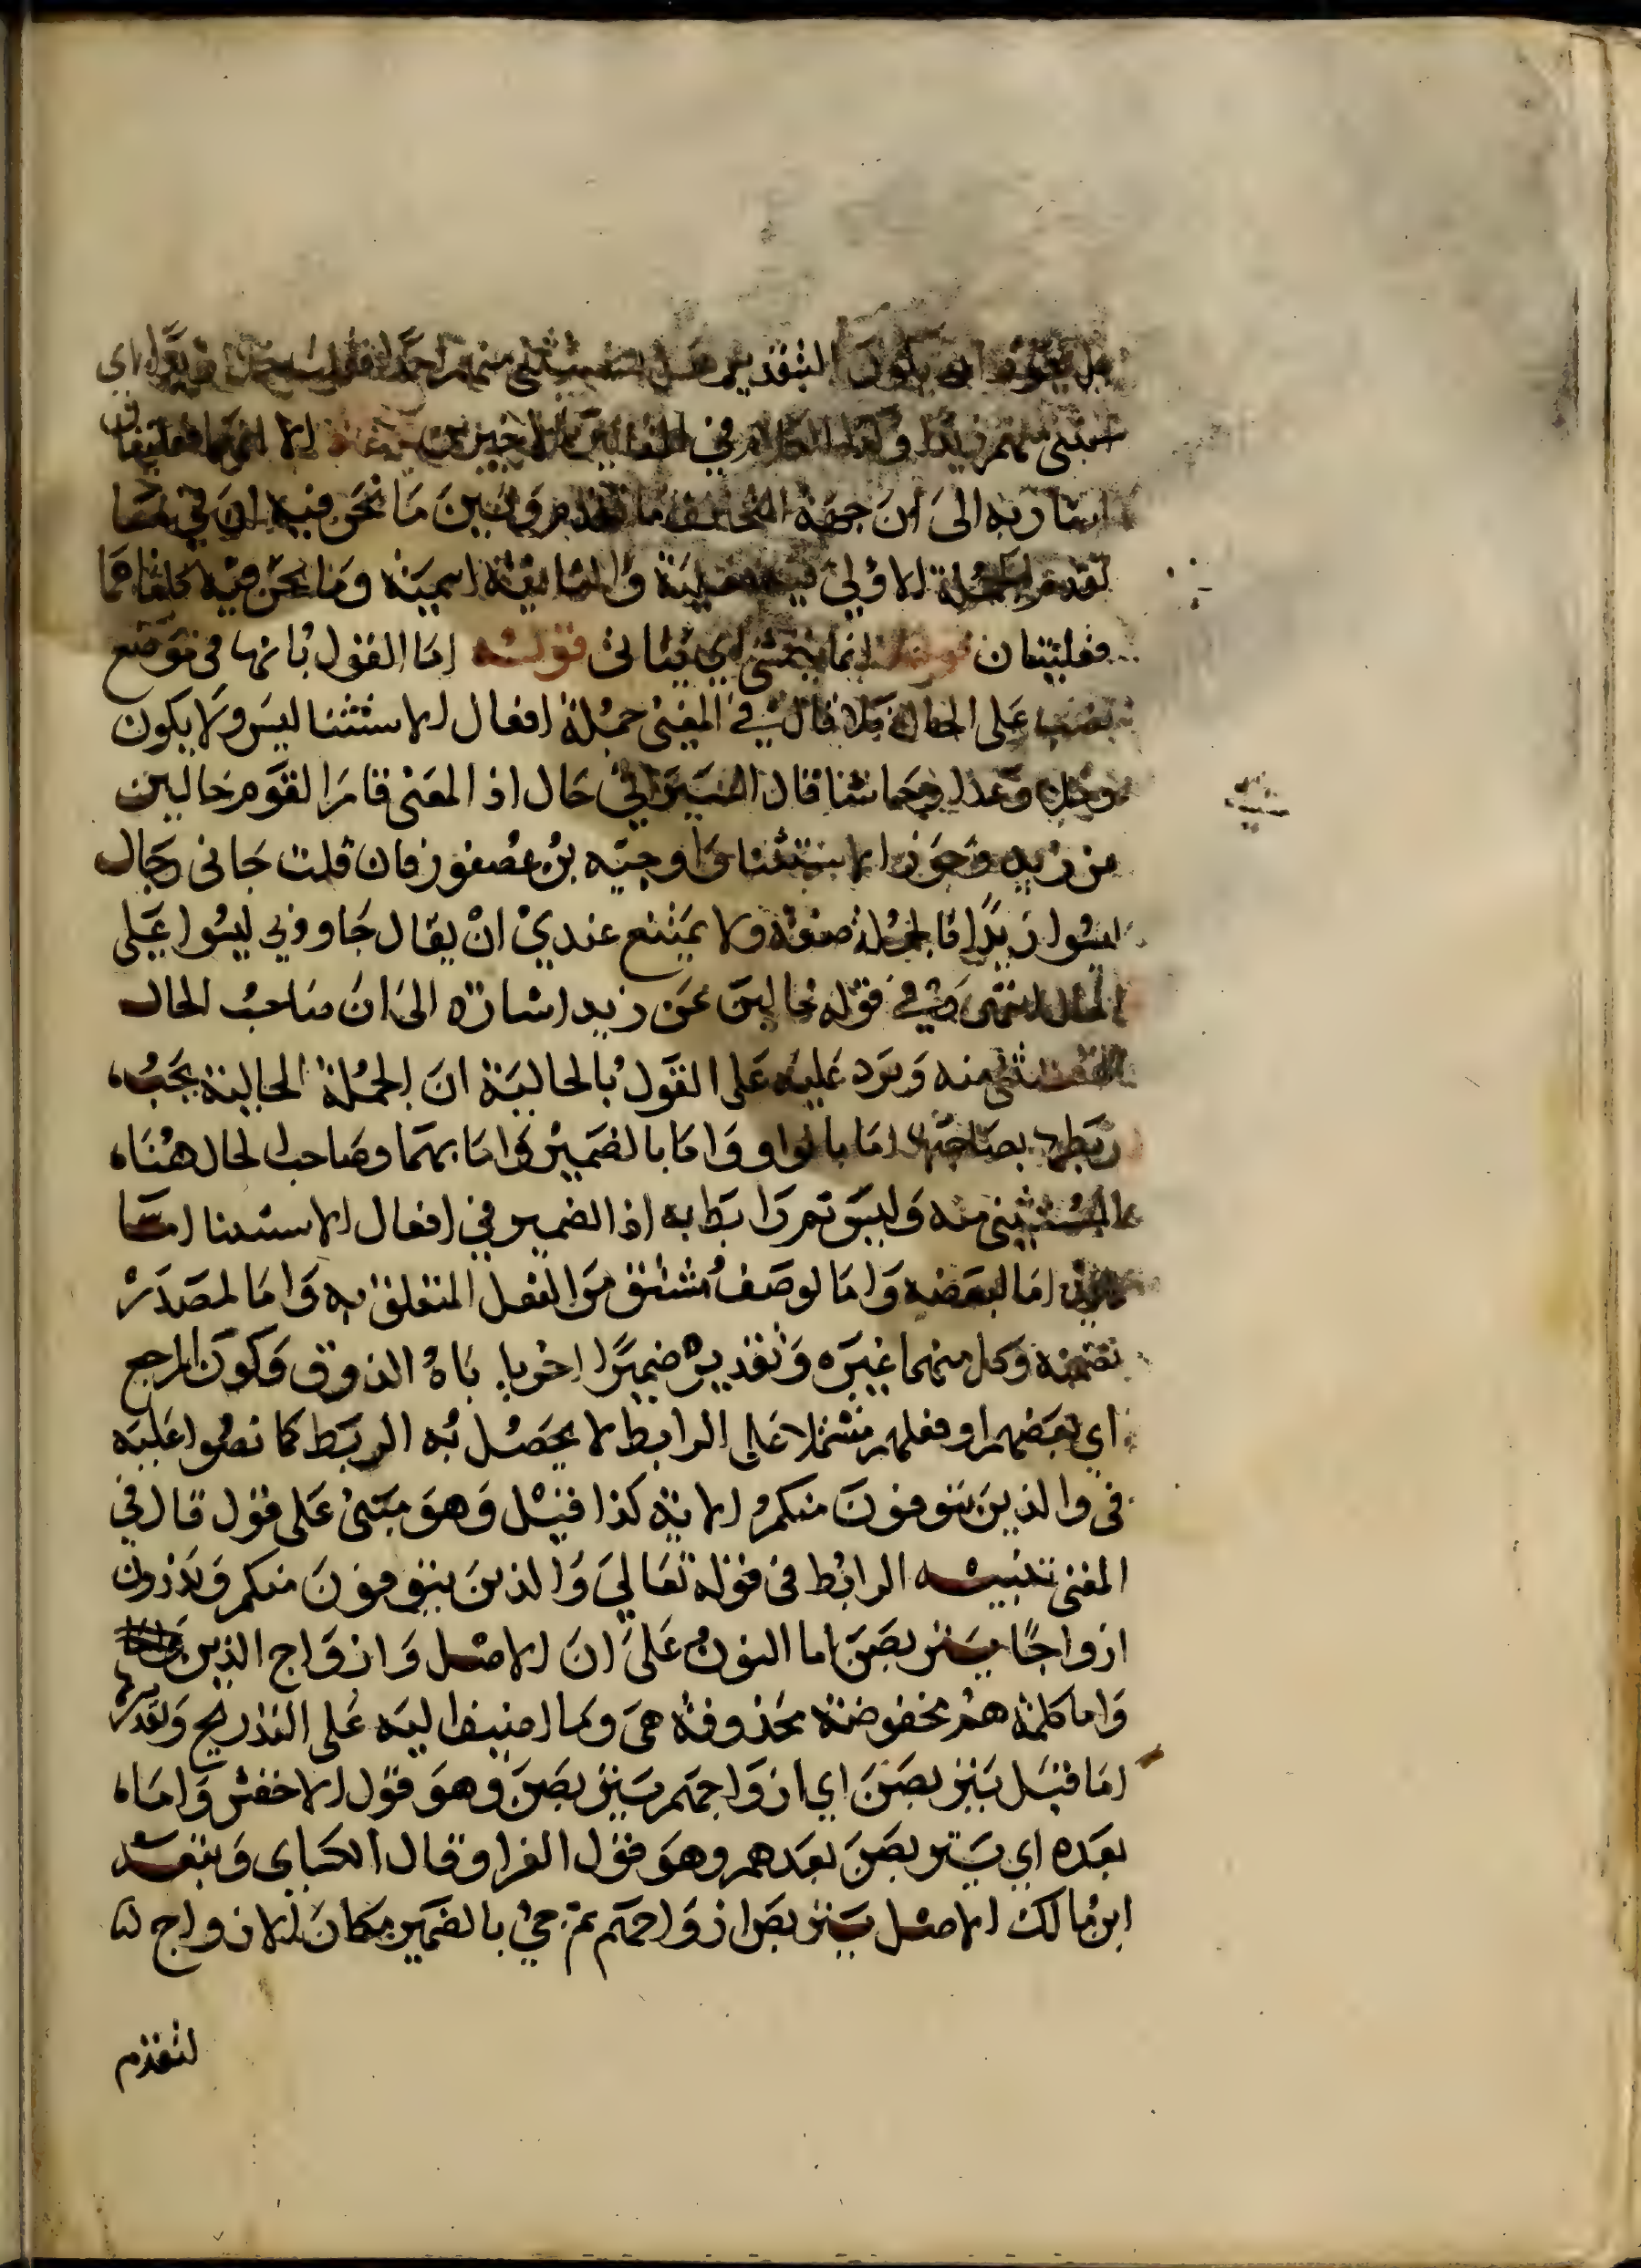 هل يجوز ان يكون التقدير هل يستثنى منهم احدا فقلت زيدا اي
استثنى منهم زيدا وهذا الكلام في المثالين الاخيرين الا انهما فعليتان
اشار به الى ان جهة التخالف ما تقدم وبين ما نحن فيه ان في ما
تقدم الجملة الاولى فيه فعلية والثانية اسمية وما نحن فيه كلتاهما
فعليتان قوله انما يتمشى اي يتاتى قوله اما القول بانها في موضع
نصب على الحال فلا قال في المغنى جملة افعال الاستثنا ليس ولا يكون
وخلا وعدا وحاشا قال السيرافي حال اذ المعنى قام القوم خالين
من زيد وجوز الاستثنا واوجبه بن عصفور فان قلت جانى رجال
ليسوا زيدا فالجملة صفة ولا يمتنع عندي ان يقال جاوني ليسوا على
الحال انتهى وفي قوله خالين عن زيد اشارة الى ان صاحب الحال
المستثنى منه ويرد عليه على القول بالحالية ان الجملة الحالية يجب
ربطها بصاحبها اما بالواو واما بالضمير واما بهما وصاحب الحال هنا
المستثنى منه وليس ثم رابط به اذ الضمير في افعال الاستثنا اما
اما لبعضه واما لوصف مشتق من الفعل المتعلق به واما لمصدر
تضمنه وكل منهما غيره وتقديره ضميرا اخر ياباه الذوق وكون المرجع
اي بعضهم او فعلهم مشتملا على الرابط لا يحصل به الربط كما نصوا عليه
في والذين يتوفون منكم الاية كذا قيل وهو مبنى على قول قال في
المغنى تنبيه الرابط في قوله تعالى والذين يتوفون منكم ويذرون
ازواجا يتربصن اما النون على ان الاصل وازواج الذين
واما كلمة هم مخفوضة محذوفة هي وما اضيف اليه على التدريج وتقديرها
اما قبل يتربصن اي ازواجهم يتربصن وهو قول الاخفش واما
بعده اي يتربصن بعدهم وهو قول الفرا وقال الكساي وتبعه
ابن مالك الاصل يتربص ازواجهم ثم جي بالضمير مكان الازواج
لتقدم